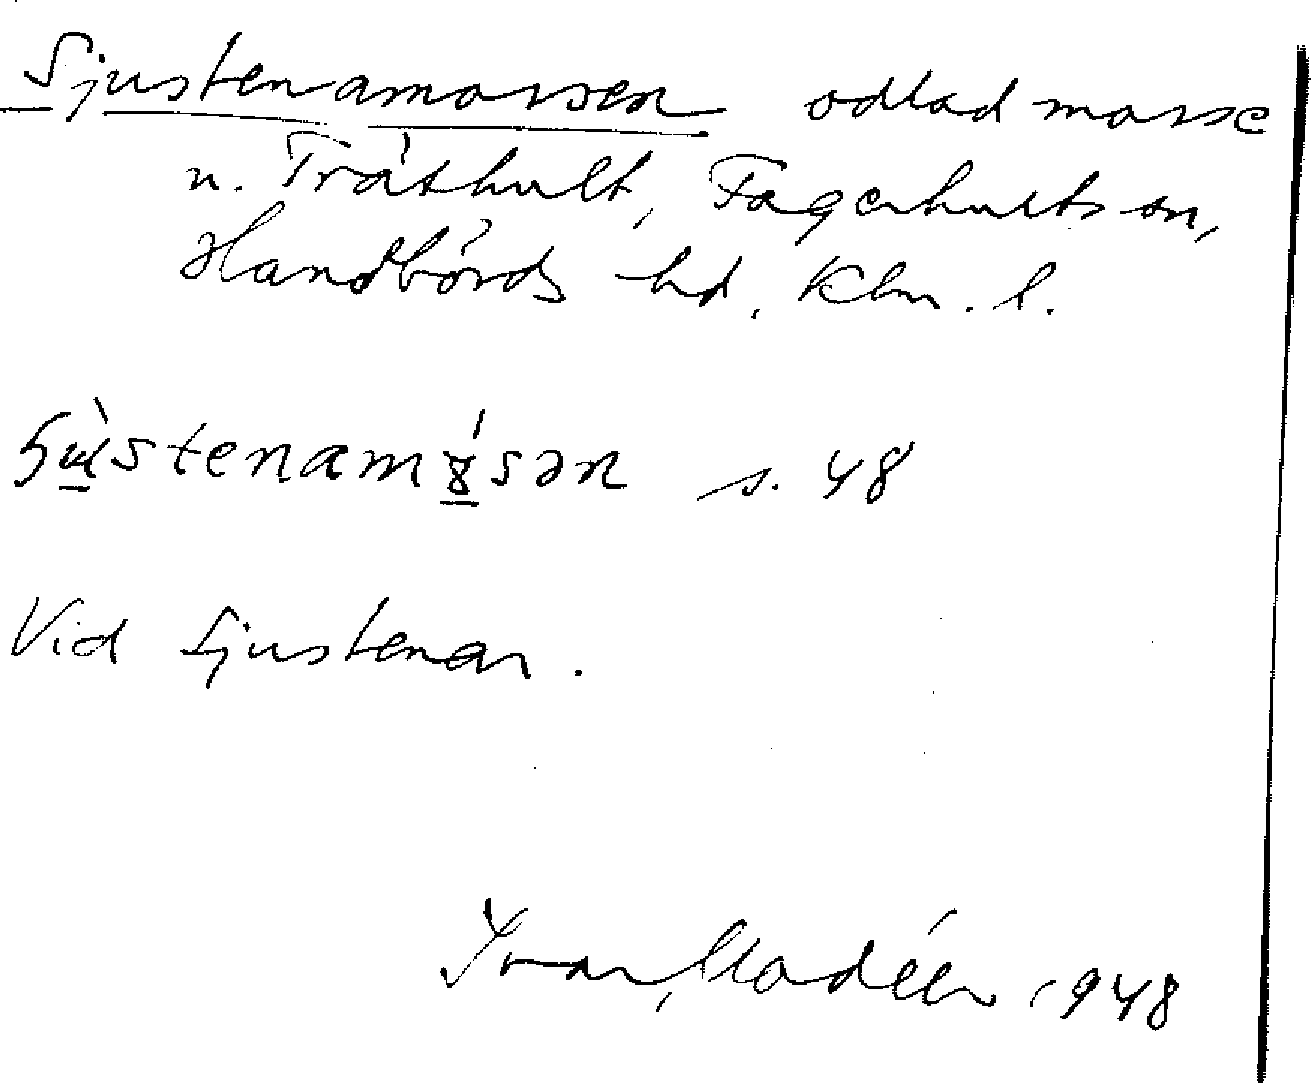 Sjustenamossen odlad mosse
u. Tråthult, Fagerhults sn,
Handbörds hd, Klm. l.
s. 48
Vid Sjustenar.
Ivar Modéer 1948